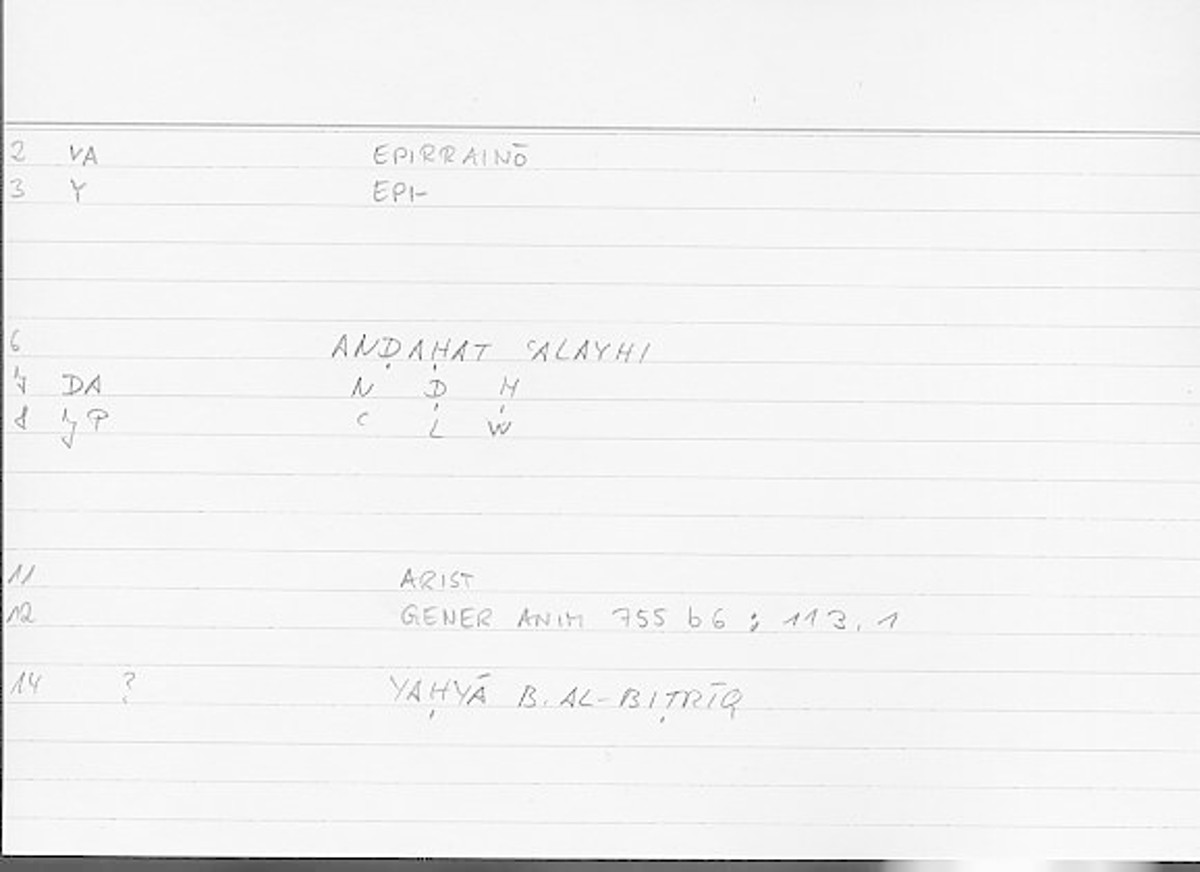 2 VA EPIRRAINŌ
3 Y EPI-
6 ANḌAḤAT ʿALAYHI
7 DA N Ḍ Ḥ
8 P ʿ L W
11 ARIST
12 GENER ANIM 755 b6 ; 113.1
14 ? YAḤYĀ B. AL-BIṬRĪQ